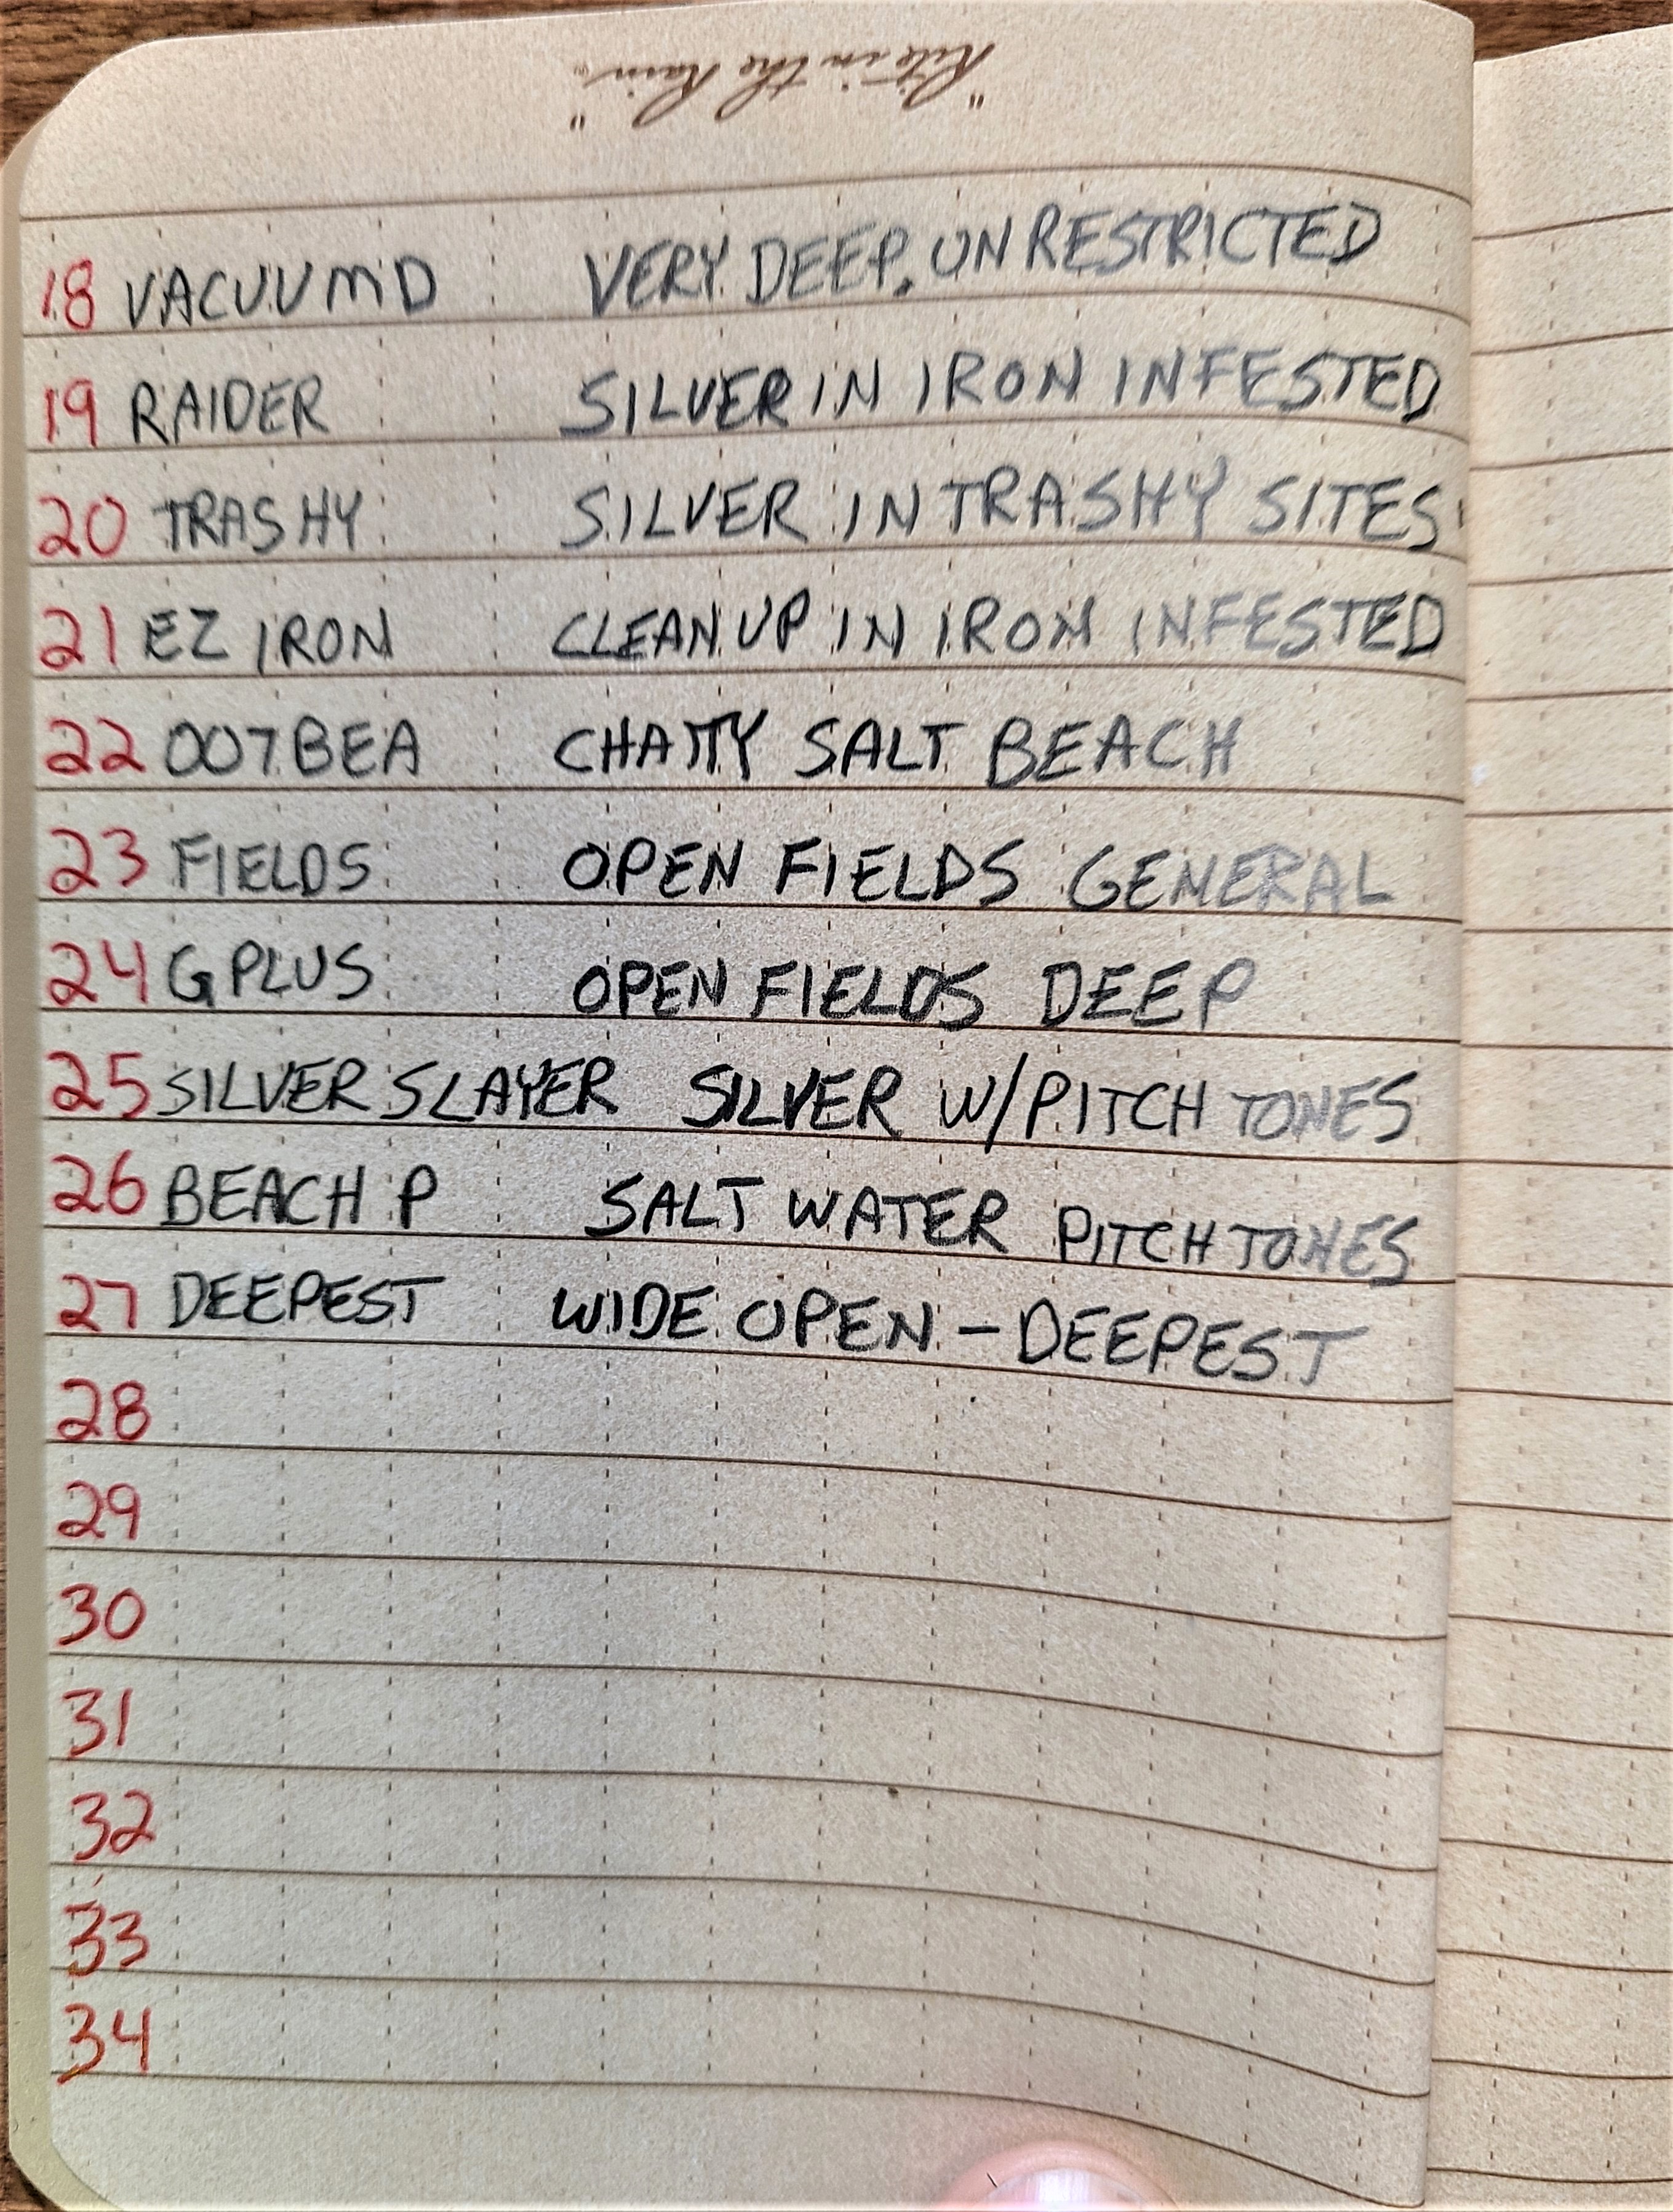 "Rite in the Rain"
18 VACUUMD VERY DEEP. UNRESTRICTED
19 RAIDER SILVER IN IRON INFESTED
20 TRASHY SILVER IN TRASHY SITES
21 EZ IRON CLEAN UP IN IRON INFESTED
22 007BEA CHATTY SALT BEACH
23 FIELDS OPEN FIELDS GENERAL
24 G PLUS OPEN FIELDS DEEP
25 SILVER SLAYER SILVER W/PITCH TONES
26 BEACH P SALT WATER PITCH TONES
27 DEEPEST WIDE OPEN - DEEPEST
28
29
30
31
32
33
34